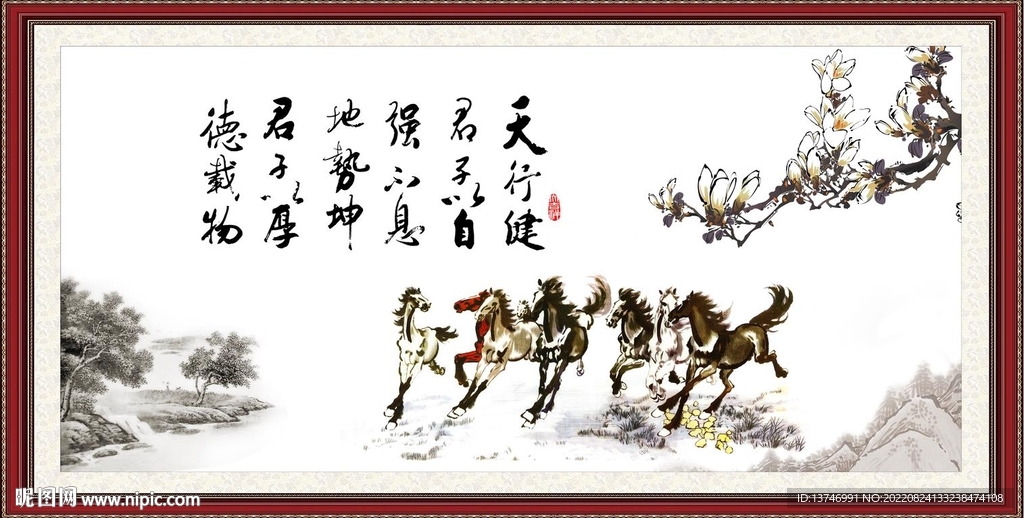 天行健
君子以自
强不息
地势坤
君子以厚
德载物
昵图网 www.nipic.com
ID:13746991 NO:20220824133238474108